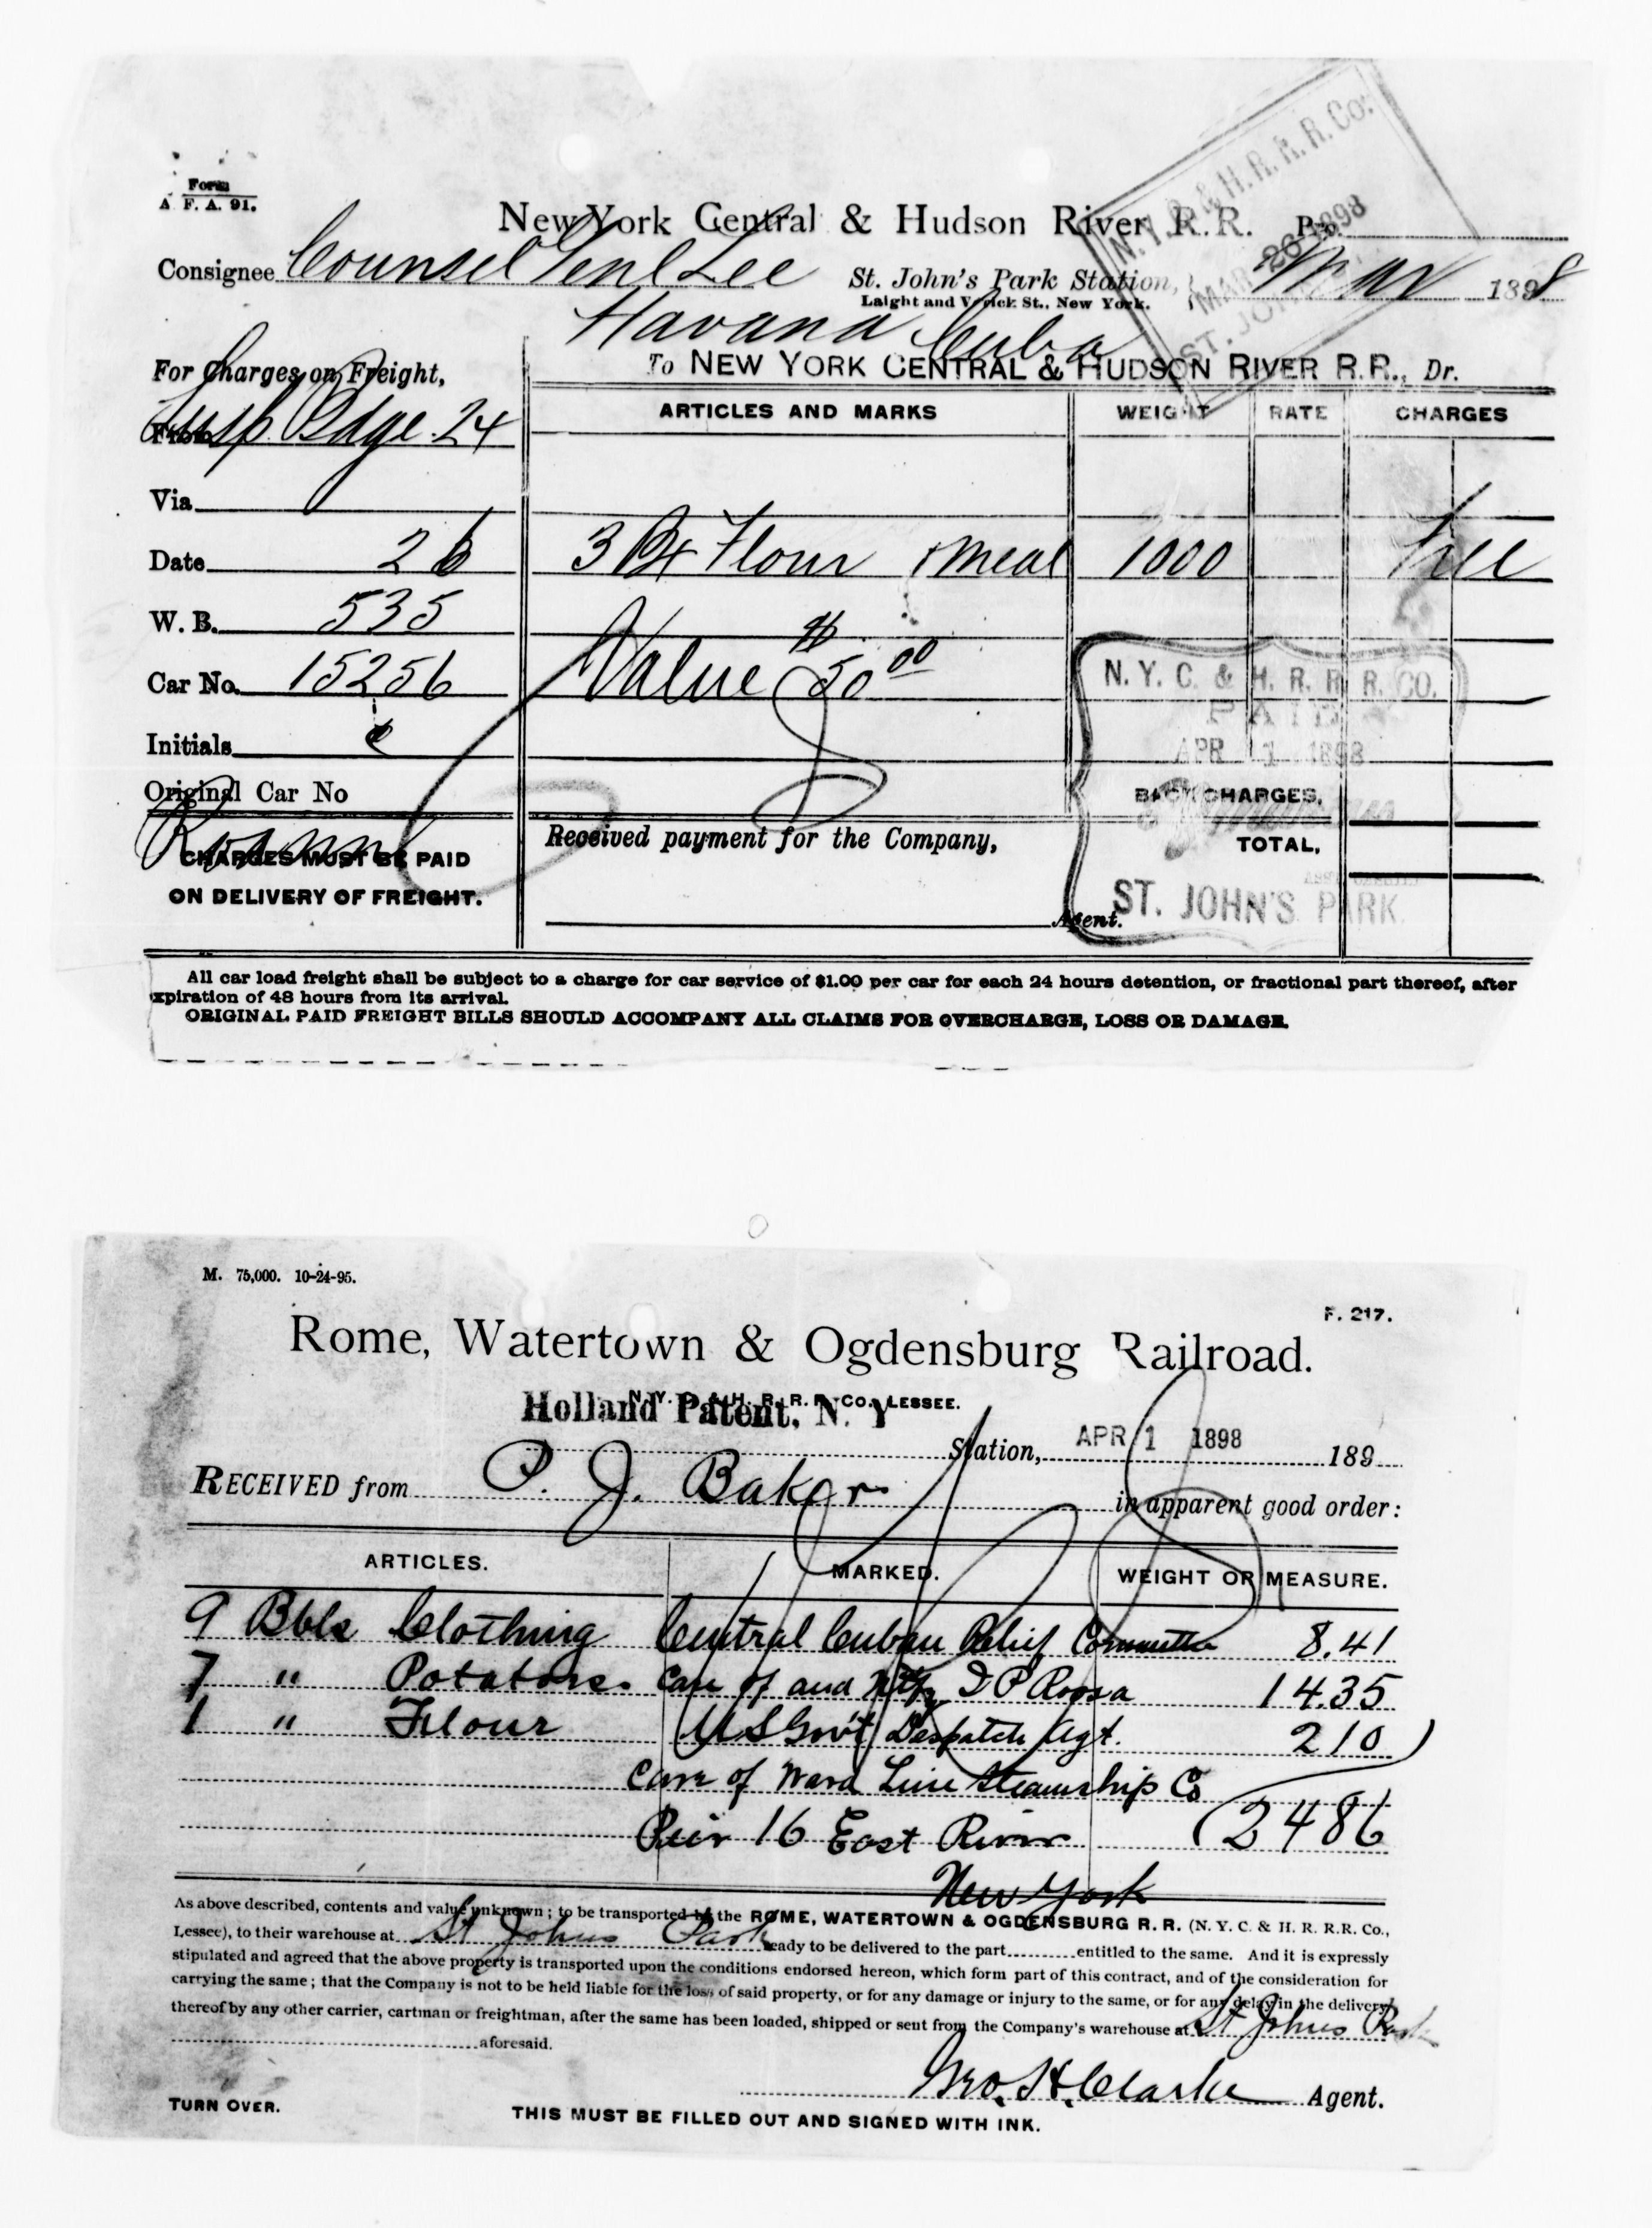 Form
A. F. A. 91.
N. Y. C. & H. R. R. R. Co.
MAR 26 1898
ST. JOHN'S
New York Central & Hudson River R.R. Pro.
Consignee Counsel Genl Lee St. John's Park Station, Mar 1898
Laight and Varick St., New York.
Havana Cuba
For Charges on Freight, To NEW YORK CENTRAL & HUDSON RIVER R.R., Dr.
ARTICLES AND MARKS WEIGHT RATE CHARGES
From Susp Bdge 24
Via
Date 26 3 Bx Flour & Meal 1000 Free
W. B. 535
Car No. 15256 Value $50 00
N. Y. C. & H. R. R. R. CO.
PAID
APR 1 1898
Initials c
Original Car No BACK CHARGES,
CHARGES MUST BE PAID Received payment for the Company, TOTAL,
ON DELIVERY OF FREIGHT.
Agent. ST. JOHN'S PARK
All car load freight shall be subject to a charge for car service of $1.00 per car for each 24 hours detention, or fractional part thereof, after
expiration of 48 hours from its arrival.
ORIGINAL PAID FREIGHT BILLS SHOULD ACCOMPANY ALL CLAIMS FOR OVERCHARGE, LOSS OR DAMAGE.
M. 75,000. 10-24-95.
F. 217.
Rome, Watertown & Ogdensburg Railroad.
N. Y. C. & H. R. R. R. CO. LESSEE.
Holland Patent, N. Y
Station, APR 1 1898 189
RECEIVED from P. J. Baker in apparent good order:
ARTICLES. MARKED. WEIGHT OR MEASURE.
9 Bbls Clothing Central Cuban Relief Committee 8.41
7 " Potatoes. Care of and Ntfy I P Roosa 14.35
1 " Flour U S Gov't Despatch Agt. 210
Care of Ward Line Steamship Co
Peir 16 East River 2486
New York
As above described, contents and value unknown; to be transported by the ROME, WATERTOWN & OGDENSBURG R. R. (N. Y. C. & H. R. R.R. Co.,
Lessee), to their warehouse at St Johns Park ready to be delivered to the part entitled to the same. And it is expressly
stipulated and agreed that the above property is transported upon the conditions endorsed hereon, which form part of this contract, and of the consideration for
carrying the same; that the Company is not to be held liable for the loss of said property, or for any damage or injury to the same, or for any delay in the delivery
thereof by any other carrier, cartman or freightman, after the same has been loaded, shipped or sent from the Company's warehouse at St Johns Park
aforesaid.
Geo. H. Clarke Agent.
TURN OVER.
THIS MUST BE FILLED OUT AND SIGNED WITH INK.